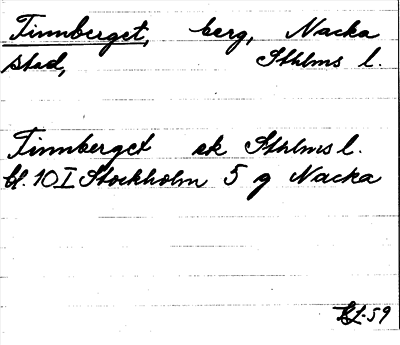 Tinnberget, berg, Nacka
stad, Sthlms l.
Tinnberget ek Sthlms l.
bl. 10 I Stockholm 5 g Nacka
-59